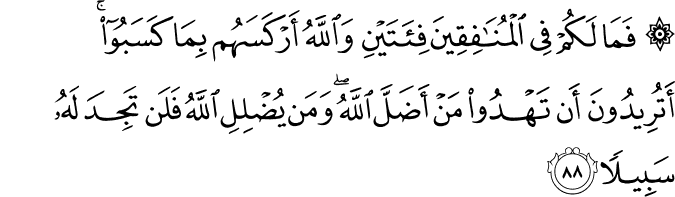 ۞ فَمَا لَكُمْ فِى ٱلْمُنَٰفِقِينَ فِئَتَيْنِ وَٱللَّهُ أَرْكَسَهُم بِمَا كَسَبُوٓا۟ ۚ
أَتُرِيدُونَ أَن تَهْدُوا۟ مَنْ أَضَلَّ ٱللَّهُ ۖ وَمَن يُضْلِلِ ٱللَّهُ فَلَن تَجِدَ لَهُۥ
سَبِيلًا ٨٨